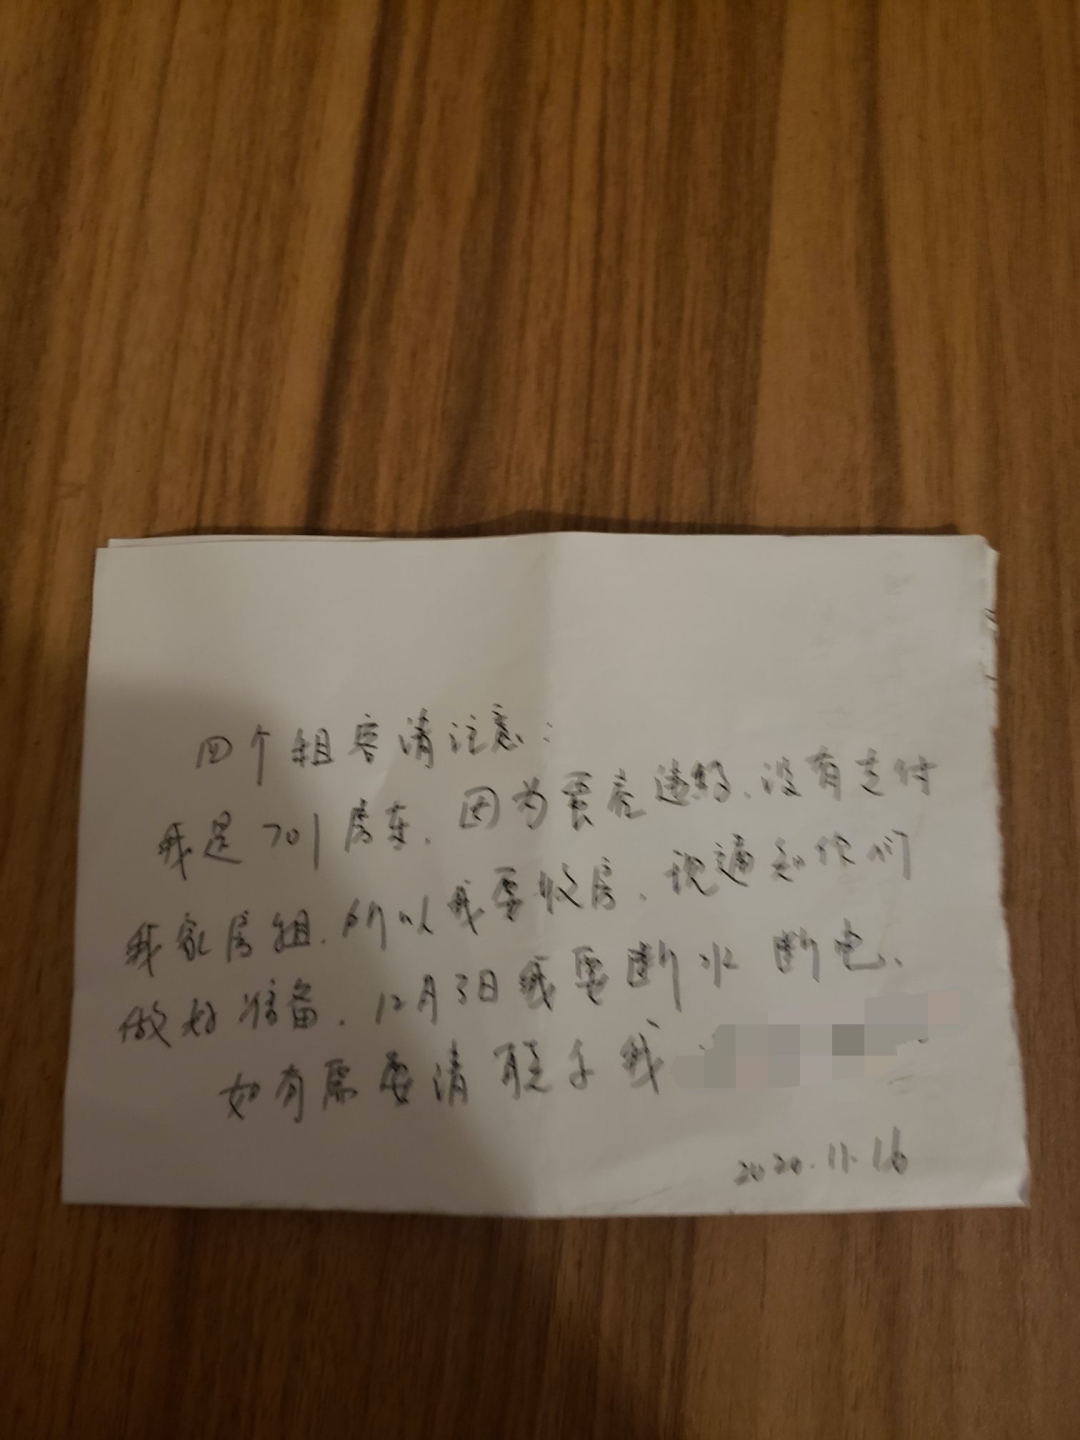 四个租客请注意：
我是701房东，因为蛋壳违约，没有支付
我家房租，所以我要收房，现通知你们
做好准备，12月3日我要断水断电，
如有需要请联系我
2020.11.16